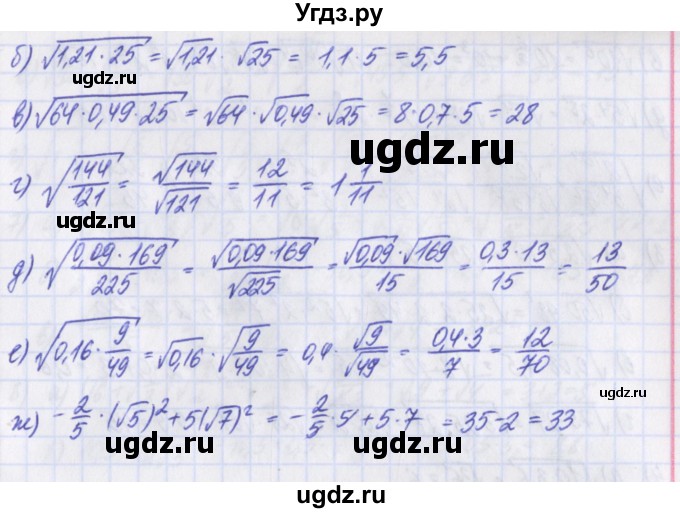 Угдз.ру
б) √(1,21 · 25) = √1,21 · √25 = 1,1 · 5 = 5,5
ugdz.ru
в) √(64 · 0,49 · 25) = √64 · √0,49 · √25 = 8 · 0,7 · 5 = 28
ugdz.ru
г) √(144/121) = √144/√121 = 12/11 = 1 1/11
ugdz.ru
д) √((0,09 · 169)/225) = √(0,09 · 169)/√225 = (√0,09 · √169)/15 = (0,3 · 13)/15 = 13/50
ugdz.ru
е) √(0,16 · 9/49) = √0,16 · √(9/49) = 0,4 · √9/√49 = (0,4 · 3)/7 = 12/70
ugdz.ru
ж) -2/5 · (√5)² + 5(√7)² = -2/5 · 5 + 5 · 7 = 35 - 2 = 33
ugdz.ru
ugdz.ru
ugdz.ru